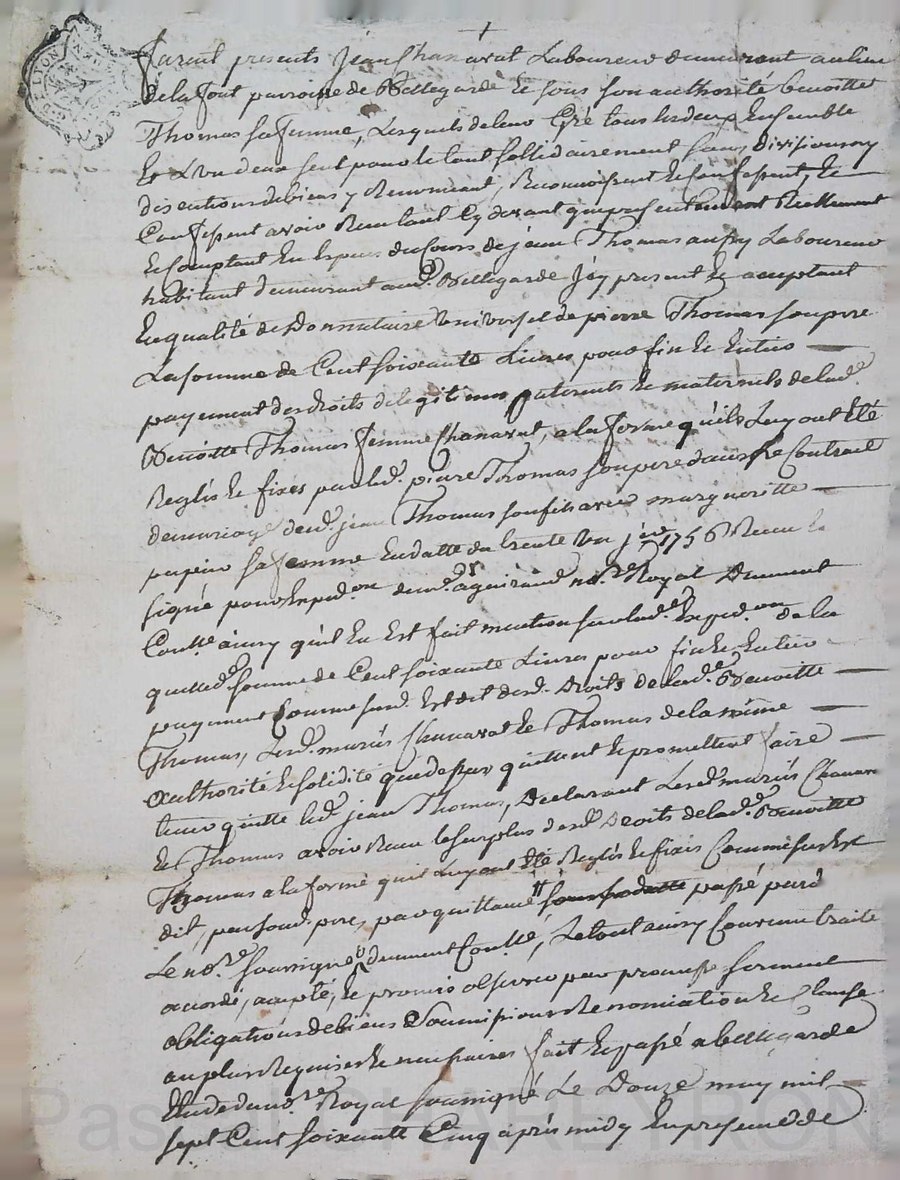 LYON
+
furent presents Jean Chanavat Laboureur demeurant au lieu
de la font parroisse de Bellegarde et sous son authorité benoitte
Thomas sa femme, Lesquels de leur Gré tous les deux Ensemble
Et L'un deux seul pour le tout sollidairement sans division ny
discution de biens y Renonceant, Reconnoissent et Confessent, Et
Confessent avoir Reçu tant Cy devant que presentement Reellement
et Comptant En Especes du Cours de jean Thomas aussy Laboureur
habitant demeurant aud. Bellegarde Jcy present et acceptant
En qualité de Donnataire universel de pierre Thomas son pere
La somme de Cent soixante Livres pour fin et Entier
payement des droits de legitimes paternels et maternels de lad.
Benoitte Thomas femme Chanavat, a la forme qu'ils Luy ont Eté
Reglés et fixés par led. pierre Thomas son pere dans le Contract
de mariage dud. jean Thomas son fils avec margueritte
sa femme En datte du trente un jer 1756 Reçu Et
signé pour Exped.on du me. no.re Royal Dument
Con.lé ainsy qu'il En Est fait mention sur lad. Exped.on de la
quelle d. somme de Cent soixante Livres pour fin et Entier
payement Comme sus d. Est dit desd. Droits de lad. Benoitte
Thomas, Lesd. mariés Chanavat et Thomas de la même
authorité et solidité que dessus quittent et promettent faire
tenir quitte led. jean Thomas, Declarant Lesd. mariés Chanavat
et Thomas avoir Reçu le surplus desd. Droits de lad. Benoitte
Thomas a la forme qu'il Luy ont Eté Reglés et fixés Comme sus Est
dit, par sond. pere, par quittance passé par d
Le no.re soussigné dument Con.lé, Le tout ainsy Convenu traité
accordé, accepté, et promis observer par promesse serment
obligations de biens soumissions Renonciation et Clause
au plus Requises et necessaires fait et passé a bellegarde
Etude du no.re Royal soussigné Le Douze may mil
sept Cent soixante Cinq après midy En presence de
Pascal CHAREYRON